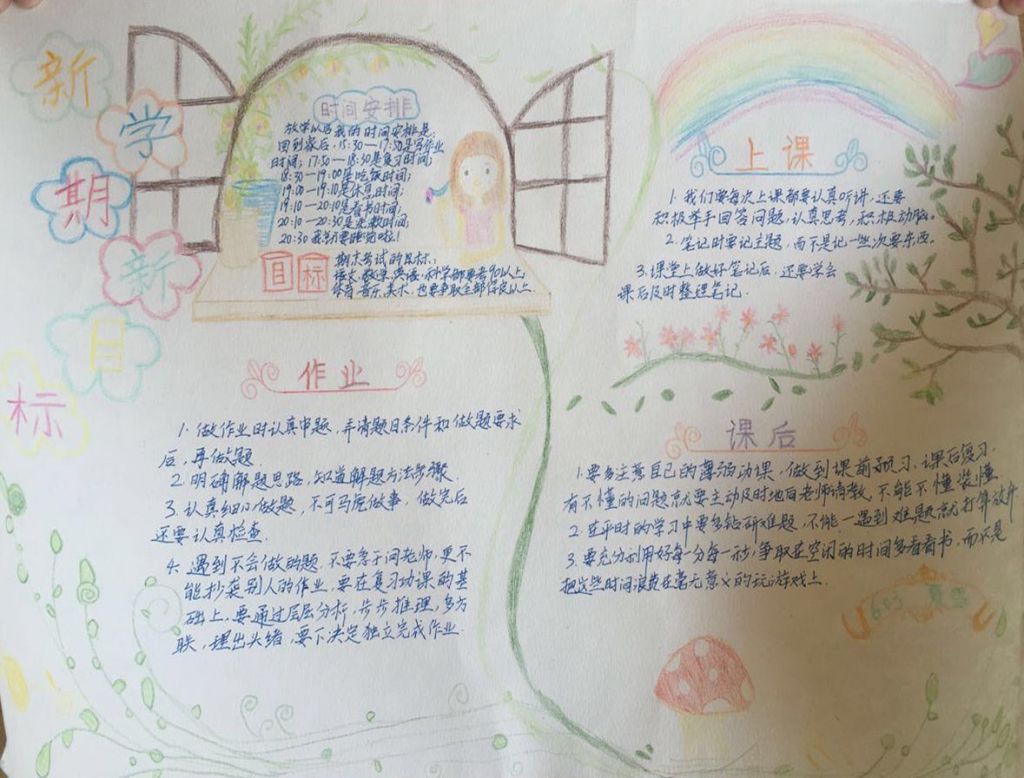 新
学
期
新
目
标
时间安排
放学以后我的时间安排是:
回到家后,15:30—17:30是写作业
时间;17:30—18:30是复习时间;
18:30—19:00是吃饭时间;
19:00—19:10是休息时间;
19:10—20:10是看书时间;
20:10—20:30是洗漱时间;
20:30我就要睡觉啦!
目标
期末考试的目标:
语文、数学、英语、科学都要考90以上,
体育、音乐、美术、也要争取全部保良以上
上课
1. 我们要每次上课都要认真听讲,还要
积极举手回答问题,认真思考,积极动脑。
2. 笔记时要记主题,而不是记一些次要东西。
3. 课堂上做好笔记后,还要学会
课后及时整理笔记.
作业
1. 做作业时认真审题,弄清题目条件和做题要求
后,再做题
2. 明确解题思路,知道解题方法步骤.
3. 认真细心做题,不可马虎做事,做完后
还要认真检查.
4. 遇到不会做的题,不要急于问老师,更不
能抄袭别人的作业,要在复习功课的基
础上,要通过层层分析,步步推理,多方
联,理出头绪,要下决定独立完成作业.
课后
1. 要多注意自己的薄弱功课,做到课前预习,课后复习.
有不懂的问题就要主动及时地向老师请教,不能不懂装懂.
2. 在平时的学习中要多钻研难题,不能一遇到难题就打算放弃
3. 要充分利用好每分每一秒,争取在空闲的时间多看看书,而不是
把这些时间浪费在毫无意义的玩游戏上.